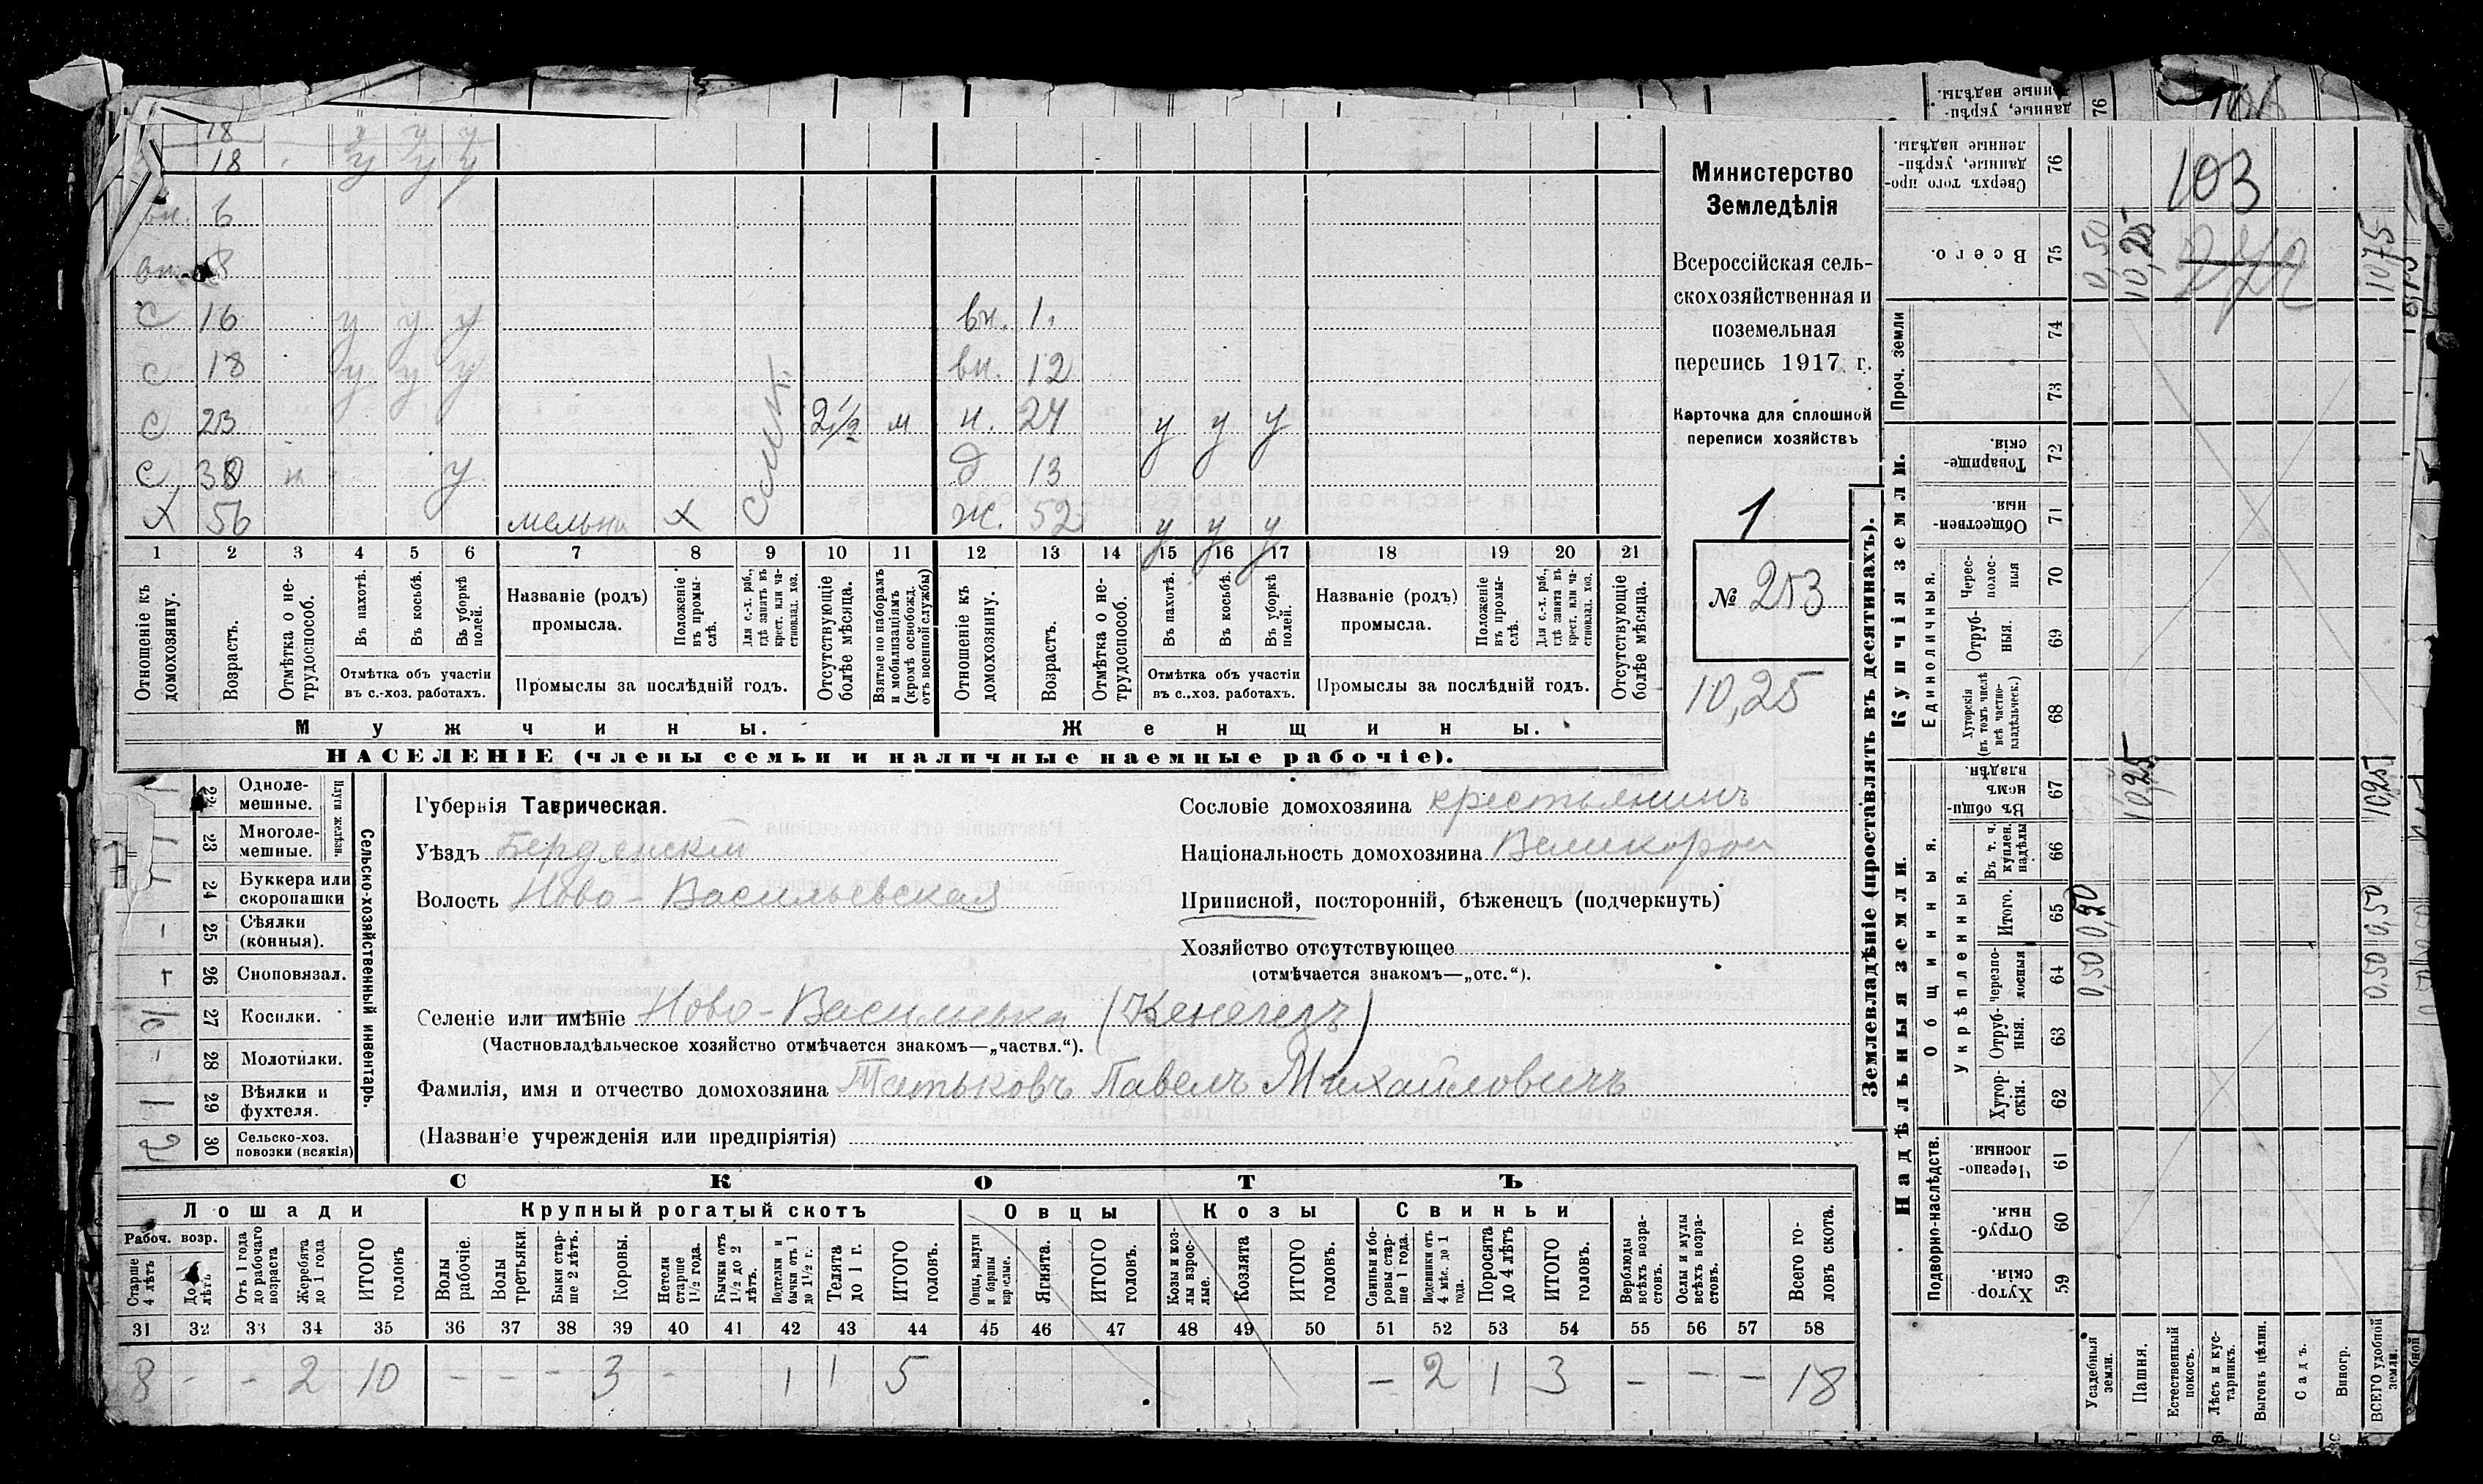 18 у у у
18 у у у
вн. 6
8
с 16 у у у вн. 1
с 18 у у у вн. 12
с 23 2 1/2 м н. 24 у у у
с 38 н у д 13
х 56 х ж. 52 у у у
1 2 3 4 5 6 7 8 9 10 11 12 13 14 15 16 17 18 19 20 21
Отношеніе къ домохозяину.
Возрастъ.
Отмѣтка о нетрудоспособ.
Въ пахотѣ.
Въ косьбѣ.
Въ уборкѣ полей.
Отмѣтка объ участіи
въ с.-хоз. работахъ.
Названіе (родъ)
промысла.
Положеніе въ промыслѣ.
Для с.-х. раб., гдѣ занятъ въ крест. или частновлад. хоз.
Промыслы за послѣдній годъ.
Отсутствующіе болѣе мѣсяца.
Взятые по наборамъ и мобилизаціямъ (кромѣ освобожд. отъ военной службы)
Отношеніе къ домохозяину.
Возрастъ.
Отмѣтка о нетрудоспособ.
Въ пахотѣ.
Въ косьбѣ.
Въ уборкѣ полей.
Отмѣтка объ участіи
въ с.-хоз. работахъ.
Названіе (родъ)
промысла.
Положеніе въ промыслѣ.
Для с.-х. раб., гдѣ занята въ крест. или частновлад. хоз.
Промыслы за послѣдній годъ.
Отсутствующіе болѣе мѣсяца.
Мужчины.
Женщины.
НАСЕЛЕНІЕ (члены семьи и наличные наемные рабочіе).
Министерство
Земледѣлія
Всероссійская сель-
скохозяйственная и
поземельная
перепись 1917 г.
Карточка для сплошной
переписи хозяйствъ
1
№ 253
10,25
Плуги желѣзн.
22 Одноле-
мешные.
23 Многоле-
мешные.
24 Буккера или
скоропашки
25 Сѣялки
(конныя).
26 Сноповязал.
27 Косилки.
28 Молотилки.
29 Вѣялки и
фухтеля.
2 30 Сельско-хоз.
повозки (всякія)
Сельско-хозяйственный инвентарь.
Губернія Таврическая.
Уѣздъ Бердянскій
Волость Ново-Васильевская
Сословіе домохозяина крестьянинъ
Національность домохозяина Великорос
Приписной, посторонній, бѣженецъ (подчеркнуть)
Хозяйство отсутствующее
(отмѣчается знакомъ—„отс.“).
Селеніе или имѣніе Ново-Васильевка (Кенегезъ)
(Частновладѣльческое хозяйство отмѣчается знакомъ—„частвл.“).
Фамилія, имя и отчество домохозяина Татьковъ Павелъ Михайловичъ
(Названіе учрежденія или предпріятія)
СКОТЪ
Лошади Крупный рогатый скотъ Овцы Козы Свиньи
Рабоч. возр.
Старше 4 лѣтъ
До 4 лѣтъ
Отъ 1 года до рабочаго возраста
Жеребята до 1 года
ИТОГО головъ
Волы рабочіе.
Волы третьяки.
Быки старше 2 лѣтъ.
Коровы.
Нетели старше 1½ года.
Бычки отъ 1½ до 2 лѣтъ.
Подтелки и бычки отъ 1 до 1½ г.
Телята до 1 г.
ИТОГО головъ.
Овцы, валухи и бараны взрослые.
Ягнята.
ИТОГО головъ.
Козы и козлы взрослые.
Козлята
ИТОГО головъ.
Свиньи и боровы старше 1 года.
Подсвинки отъ 4 мѣс. до 1 года.
Поросята до 4 лѣтъ
ИТОГО головъ.
Верблюды всѣхъ возрастовъ.
Ослы и мулы всѣхъ возрастовъ.
Всего головъ скота.
31 32 33 34 35 36 37 38 39 40 41 42 43 44 45 46 47 48 49 50 51 52 53 54 55 56 57 58
8 - - 2 10 - - - 3 - 1 1 5 - 2 1 3 - - - 18
Землевладѣніе (проставлять въ десятинахъ).
Купчія земли.
Надѣльныя земли.
Проч. земли
Единоличныя.
Общинныя.
Укрѣпленныя.
Подворно-наслѣдств.
Сверхъ того проданные, укрѣпленные надѣлы. 76
103
Всего. 75 0,50 10,25 1075
74
73
Товарищескія. 72
Общественныя. 71
Череcполосныя 70
Отрубныя. 69
Хуторскія (въ томъ числѣ всѣ частновладѣльческ.) 68
Въ общинномъ владѣн. 67 10,25 10,25
Въ т. ч. куплен. надѣлы 66
Итого. 65 0,50 0,50
Черезполосныя 64 0,50 0,50
Отрубныя. 63
Хуторскія. 62
Черезполосныя 61
Отрубныя. 60
Хуторскія. 59
Усадебныя земли.
Пашня.
Естественный покосъ.
Лѣсъ и кустарникъ.
Выгонъ цѣлин.
Садъ.
Виногр.
ВСЕГО удобной земли.